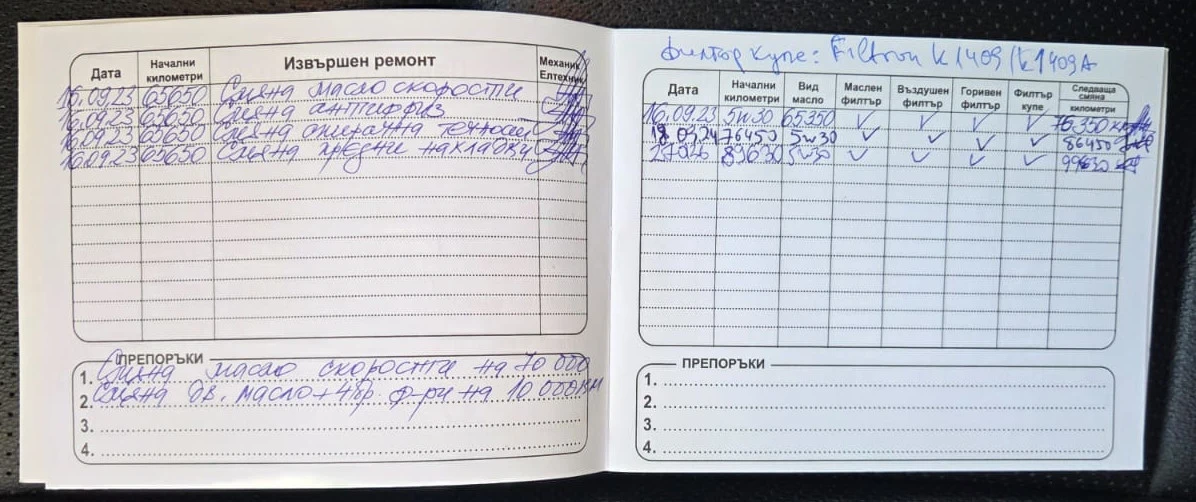 Дата Начални километри Извършен ремонт Механик Елтехник
16.09.23 65650 Смяна масло скорости
16.09.23 65650 Смяна антифриз
16.09.23 65650 Смяна спирачна течност
16.09.23 65650 Смяна предни накладки
ПРЕПОРЪКИ
1. Смяна масло скорости на 70 000
2. Смяна дв. масло + 4бр. ф-ри на 10 000км
3.
4.
филтър купе: Filtron K1409/K1409A
Дата Начални километри Вид масло Маслен филтър Въздушен филтър Горивен филтър Филтър купе Следваща смяна километри
16.09.23 5W30 65350 ✓ ✓ ✓ ✓ 75350 км
76450 5w30 ✓ ✓ ✓ ✓ 86450
89630 5w30 ✓ ✓ ✓ ✓ 99630
ПРЕПОРЪКИ
1.
2.
3.
4.